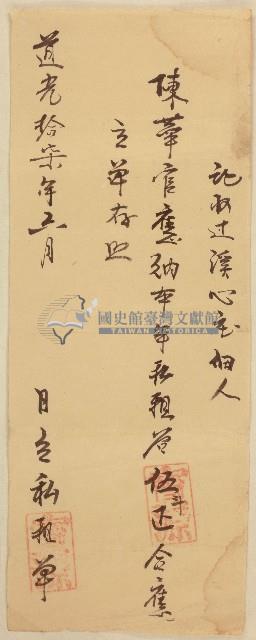 記收过溪心庄佃人
陳華官應納本年私租谷伍斗正合應
立单存照
道光拾柒年五月　日立私租单
國史館臺灣文獻館
TAIWAN HISTORICA